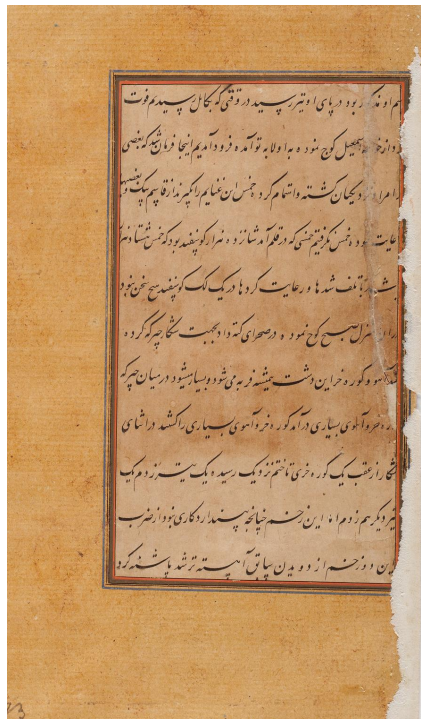 هم او مذکور بود در پای او تیر رسید در وقتی که بکابل رسیدیم فوت
و از اسمعیل کوچ نموده به اولابه تو آمده فرود آمدیم اینجا فرمان شد که بعضی
امرا دیجیان گشته و اهتمام کرده خمس این غنایم را بگیرند از قاسم بیک و بعضیها
رعایت نموده خمس نگرفتیم خمسی که در قلم آمد شانزده هزار گوسفند بود که خمس هشتاد هزار
باشد با تلف شدها و رعایت کردها در یک لک گوسفند هیچ سخن نبود
منزل صبح کوچ نموده در صحرای کته واد بجهت شکار چیرگه کرده
شد آهو و گوره خر این دشت همیشه فربه می شود و بسیار میشود در میان چیرگه
گوره خر و آهوی بسیاری درآمد گوره خر و آهوی بسیاری را کشتند در اثنای
شکار از عقب یک گوره خری تاختم نزدیک رسیده یک تیر زدم یک
تیر دیگر هم زدم اما این زخم چنانچه بیندازد کاری نبود از ضرب
این دو زخم از دویدن سابق آهسته تر شد پاشنه کرد